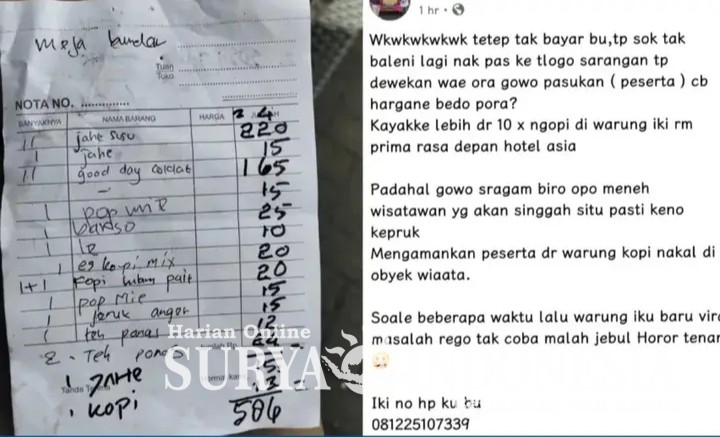 Meja bundar
Tuan
Toko
NOTA NO. ..............
BANYAKNYA NAMA BARANG HARGA
11 jahe susu 220
1 jahe 15
11 good day coklat 165
15
1 pop mie 25
1 bakso 10
1 20
1 es kopi mix 20
1+1 Kopi hitam pait 15
1 pop mie 15
1 jeruk anget 12
1 teh panas
2. Teh panas
1 JAHE
Tanda Terima
1 KOPI 506
Harian Online
SURYA
1 hr
Wkwkwkwkwk tetep tak bayar bu,tp sok tak
baleni lagi nak pas ke tlogo sarangan tp
dewekan wae ora gowo pasukan ( peserta ) cb
hargane bedo pora?
Kayakke lebih dr 10 x ngopi di warung iki rm
prima rasa depan hotel asia
Padahal gowo sragam biro opo meneh
wisatawan yg akan singgah situ pasti keno
kepruk
Mengamankan peserta dr warung kopi nakal di
obyek wiaata.
Soale beberapa waktu lalu warung iku baru vira
masalah rego tak coba malah jebul Horor tenar
Iki no hp ku bu
081225107339